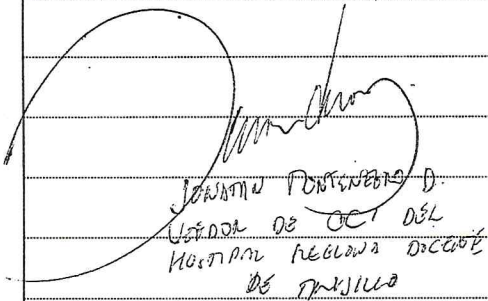 JONATAN MONTENEGRO D.
VEEDOR DE OCI DEL
HOSPITAL REGIONAL DOCENTE
DE TRUJILLO